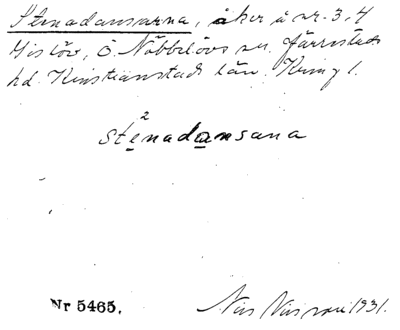 Stenadansarna, åker å nr. 3, 4
Gislöv, Ö. Nöbbelövs sn. Järrestads
hd. Kristianstads län.
2
stenadansana
Nr 5465.
Nils 1931.